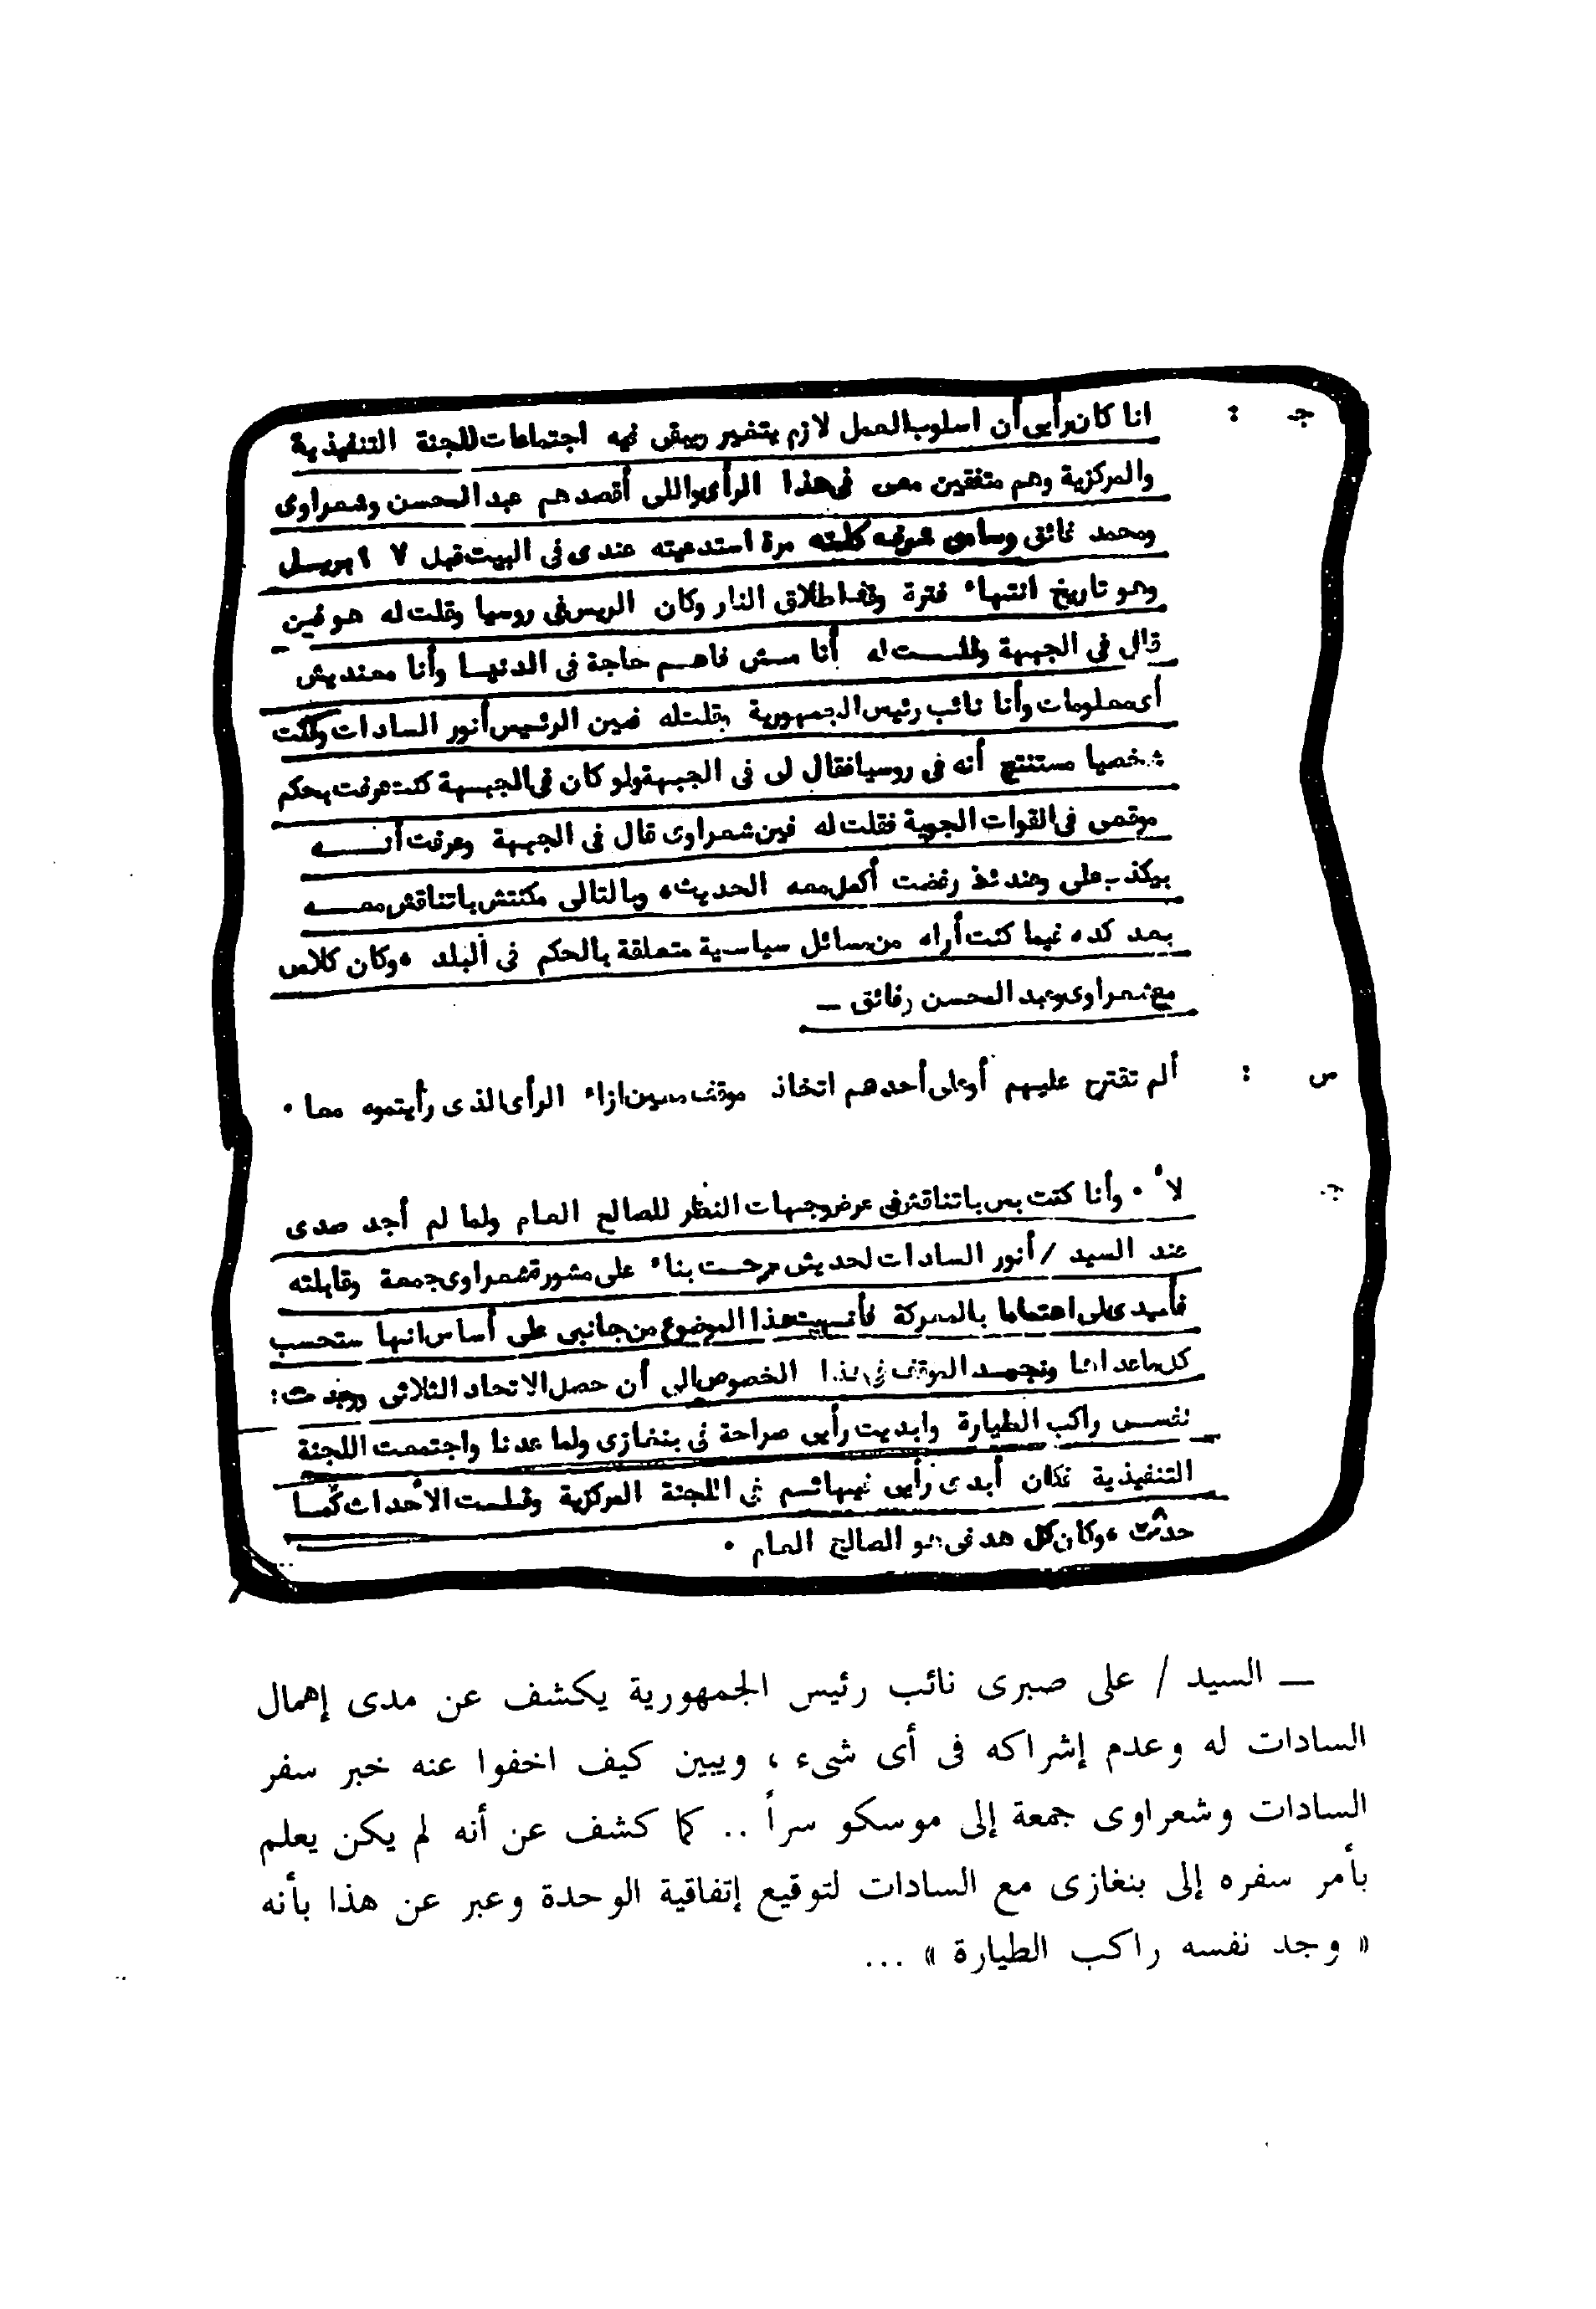 جـ : انا كان رأيى أن اسلوب العمل لازم يتغير ويبقى فيه اجتماعات للجنة التنفيذية
والمركزية وهم متفقين معى فى هذا الرأى واللى أقصدهم عبد المحسن وشعراوى
ومحمد فائق وسامى شرف كلمته مرة استدعيته عندى فى البيت قبل ٧ ابريل
وهو تاريخ انتهاء فترة وقف اطلاق النار وكان الريس فى روسيا وقلت له هو فين
قال فى الجبهة وقلت له أنا مش فاهم حاجة فى الدنيا وأنا معنديش
أى معلومات وأنا نائب رئيس الجمهورية وقلت له فين الرئيس أنور السادات وكنت
شخصيا مستنتج أنه فى روسيا فقال لى فى الجبهة ولو كان فى الجبهة كنت عرفت بحكم
موقعى فى القوات الجوية فقلت له فين شعراوى قال فى الجبهة وعرفت أنه
بيكذب على وعندئذ رفضت أكمل معه الحديث، وبالتالى مكنتش باتناقش معه
بعد كده فيما كنت أراه من مسائل سياسية متعلقة بالحكم فى البلد ، وكان كلامى
مع شعراوى وعبد المحسن وفائق –
س : ألم تقترح عليهم أو على أحدهم اتخاذ موقف معين ازاء الرأى الذى رأيتموه معا .
جـ لأ . وأنا كنت بس باتناقش فى عرض وجهات النظر للصالح العام ولما لم أجد صدى
عند السيد / أنور السادات لحديثى رحت بناء على مشورة شعراوى جمعة وقابلته
فأبدى لى اهتماما بالمعركة فأنهيت هذا الموضوع من جانبى على أساس انها ستحسب
كل ماعداها ونجمد الموقف فى هذا الخصوص الى أن حصل الاتحاد الثلاثى ووجدت :
نفسى راكب الطيارة وابديت رأيى صراحة فى بنغازى ولما عدنا واجتمعت اللجنة
التنفيذية فكان أبدى رأيى فيها ثم فى اللجنة المركزية وتسلسلت الأحداث كما
حدثت ، وكان كل هدفى هو الصالح العام .
— السيد / على صبرى نائب رئيس الجمهورية يكشف عن مدى إهمال
السادات له وعدم إشراكه فى أى شىء ، ويبين كيف اخفوا عنه خبر سفر
السادات وشعراوى جمعة إلى موسكو سراً .. كما كشف عن أنه لم يكن يعلم
بأمر سفره إلى بنغازى مع السادات لتوقيع إتفاقية الوحدة وعبر عن هذا بأنه
« وجد نفسه راكب الطيارة » ...